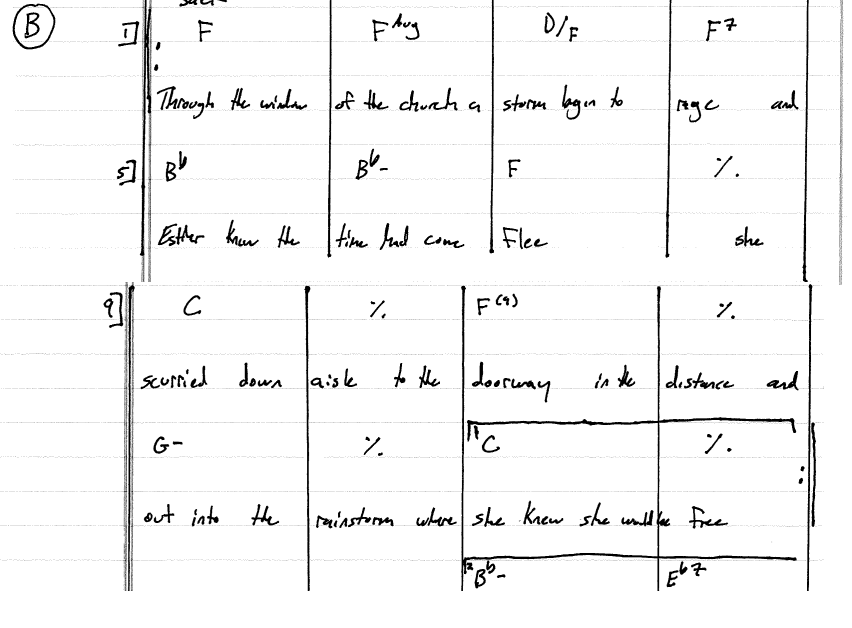 B 1] F F Aug D/F F7
Through the window of the church a storm began to rage and
5] Bb Bb- F %
Esther knew the time had come Flee she
9] C % F(9) %
scurried down aisle to the doorway in the distance and
G- % 1 C %
out into the rainstorm where she knew she would be free
2 Bb- Eb7